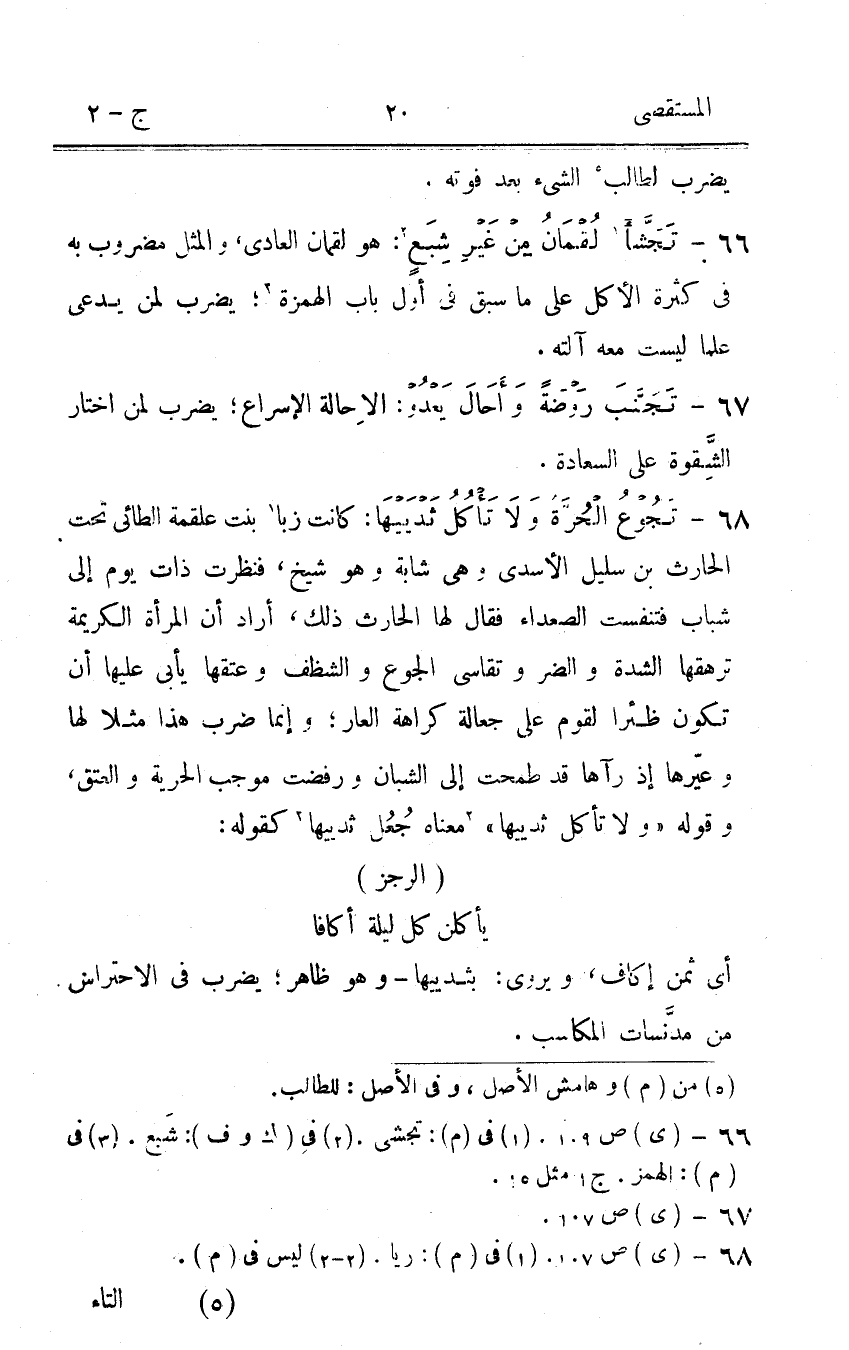 المستقصى ٢٠ ج - ٢
يضرب لطالب٥ الشىء بعد فوته .
٦٦ - تَجَشَّأَ١ لُقْمَانُ مِنْ غَيْرِ شِبَعٍ٢: هو لقمان العادى، و المثل مضروب به
فى كثرة الأكل على ما سبق فى أول باب الهمزة٣؛ يضرب لمن يـدعى
علما ليست معه آلته .
٦٧ - تَجَنَّبَ رَوْضَةً وَ أَحَالَ يَعْدُوْ: الإحالة الإسراع؛ يضرب لمن اختار
الشَّقوة على السعادة .
٦٨ - تَجُوْعُ الْحُرَّةُ وَ لَا تَأْكُلُ ثَدْيَيْهَا: كانت زبا١ بنت علقمة الطائى تحت
الحارث بن سليل الأسدى و هى شابة و هو شيخ، فنظرت ذات يوم إلى
شباب فتنفست الصعداء فقال لها الحارث ذلك، أراد أن المرأة الكريمة
ترهقها الشدة و الضر و تقاسى الجوع و الشظف و عتقها يأبى عليها أن
تكون ظئرا لقوم على جعالة كراهة العار؛ و إنما ضرب هذا مثلا لها
و عيّرها إذ رآها قد طمحت إلى الشبان و رفضت موجب الحرية و العتق،
و قوله « و لا تأكل ثدييها» ٢معناه جُعُل ثدييها٢ كقوله:
( الرجز )
يأكلن كل ليلة أكافا
أى ثمن إكاف، و يروى: بثدييها - و هو ظاهر؛ يضرب فى الاحتراس
من مدنَّسات المكاسب .
(٥) من ( م ) و هامش الأصل ، و فى الأصل : للطالب.
٦٦ - ( ى ) ص ١٠٩ . (١) فى (م): تجشى . (٢) فى ( ك و ف ): شَبع . (٣) فى
( م ) : الهمز . ج ١ مثل ١٥ .
٦٧ - ( ى ) ص ١٠٧ .
٦٨ - ( ى ) ص ١٠٧ . (١) فى ( م ) : ريا . (٢-٢) ليس فى ( م ) .
(٥) التاء